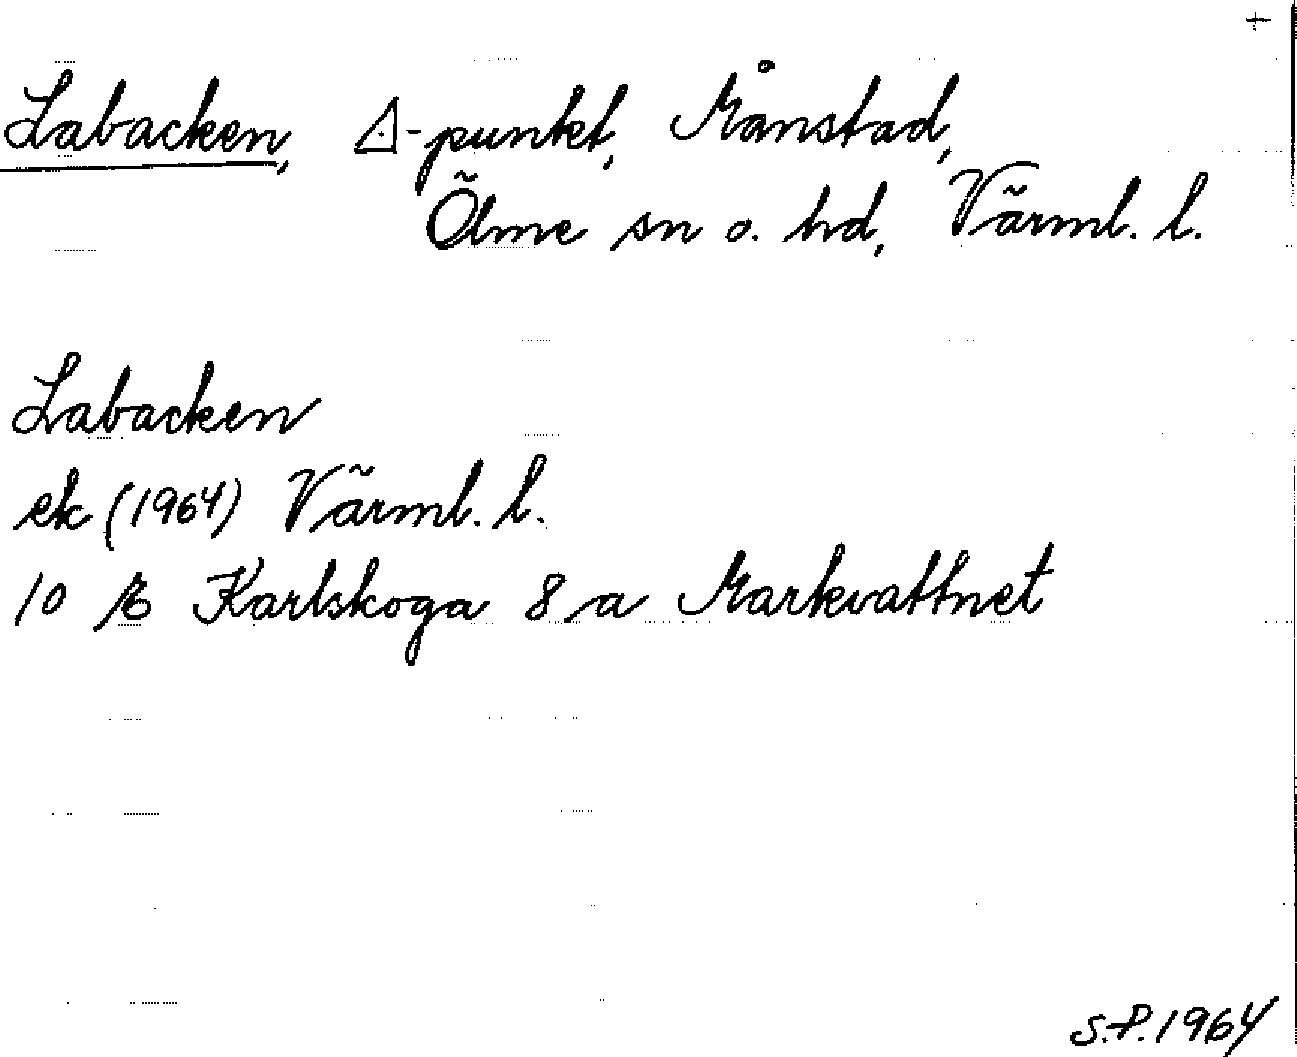 +
Labacken, △-punkt, Månstad,
Ölme sn o. hd, Värml. l.
Labacken
ek (1964) Värml. l.
10 E Karlskoga 8 a Markvattnet
S.P. 1964